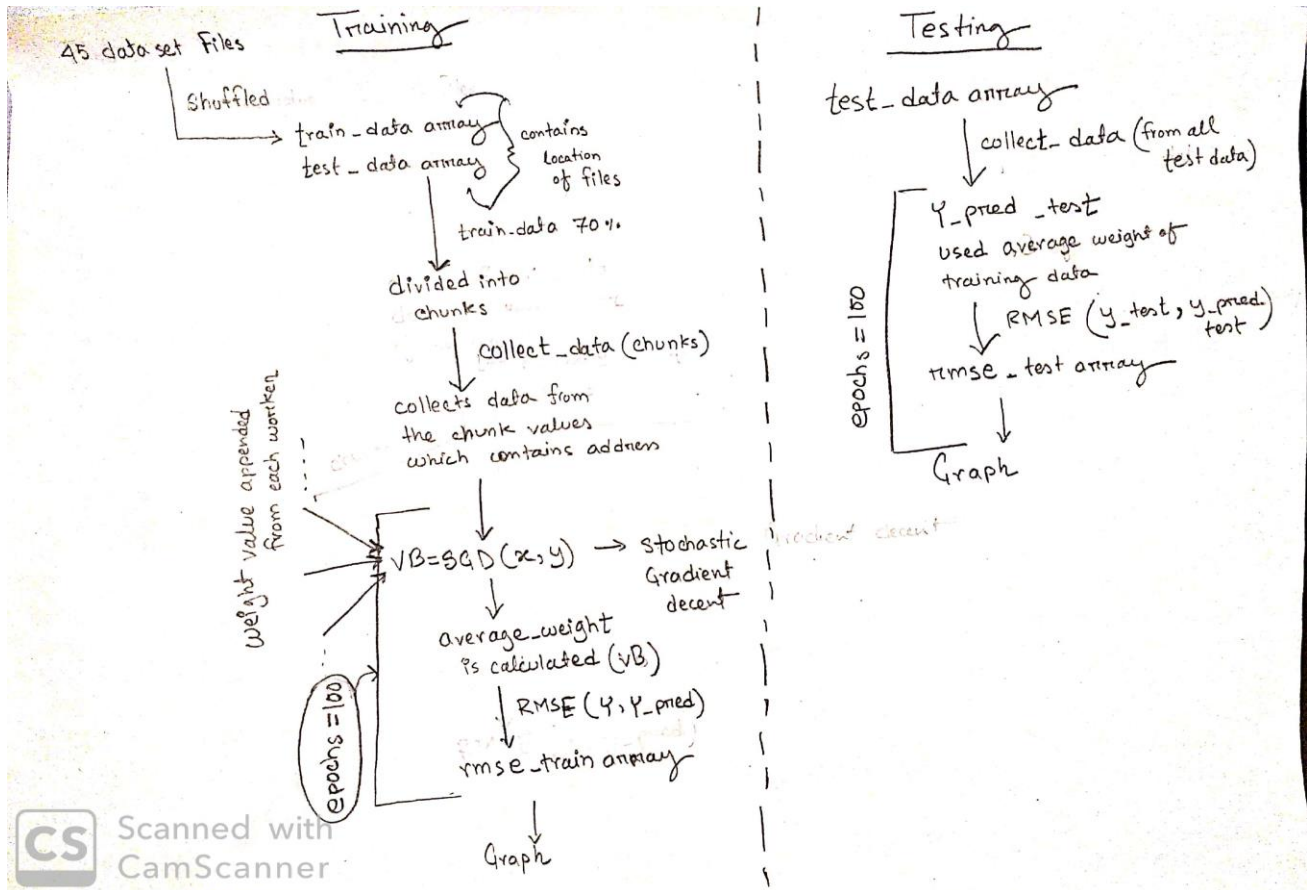 Training
45 dataset Files
Shuffled
train_data array
test_data array
contains
location
of files
train_data 70%
divided into
chunks
collect_data (chunks)
collects data from
the chunk values
which contains address
weight value appended
from each worker
VB=SGD(x,y) → Stochastic
Gradient
decent
average_weight
is calculated (VB)
RMSE (Y, Y_pred)
rmse_train array
epochs = 100
Graph
Testing
test_data array
collect_data (from all
test data)
Y_pred_test
used average weight of
training data
RMSE (y_test, y_pred_
test)
rmse_test array
epochs = 100
Graph
CS Scanned with
CamScanner